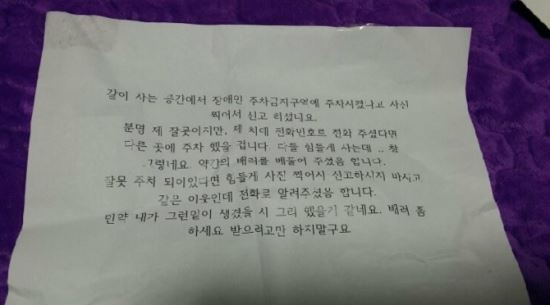 같이 사는 공간에서 장애인 주차금지구역에 주차시켰다고 사진
찍어서 신고 하셨니요.
분명 제 잘못이지만, 제 차에 전화번호로 전화 주셨다면
다른 곳에 주차 했을 겁니다. 다들 힘들게 사는데 .. 참
그렇네요. 약간의 배려를 베풀어 주셨음 합니다.
잘못 주차 되어있다면 힘들게 사진 찍어서 신고하시지 마시고
같은 이웃인데 전화로 알려주셨음 합니다.
만약 내가 그런일이 생겼을 시 그리 했을거 같네요. 배려 좀
하세요 받으려고만 하지말구요